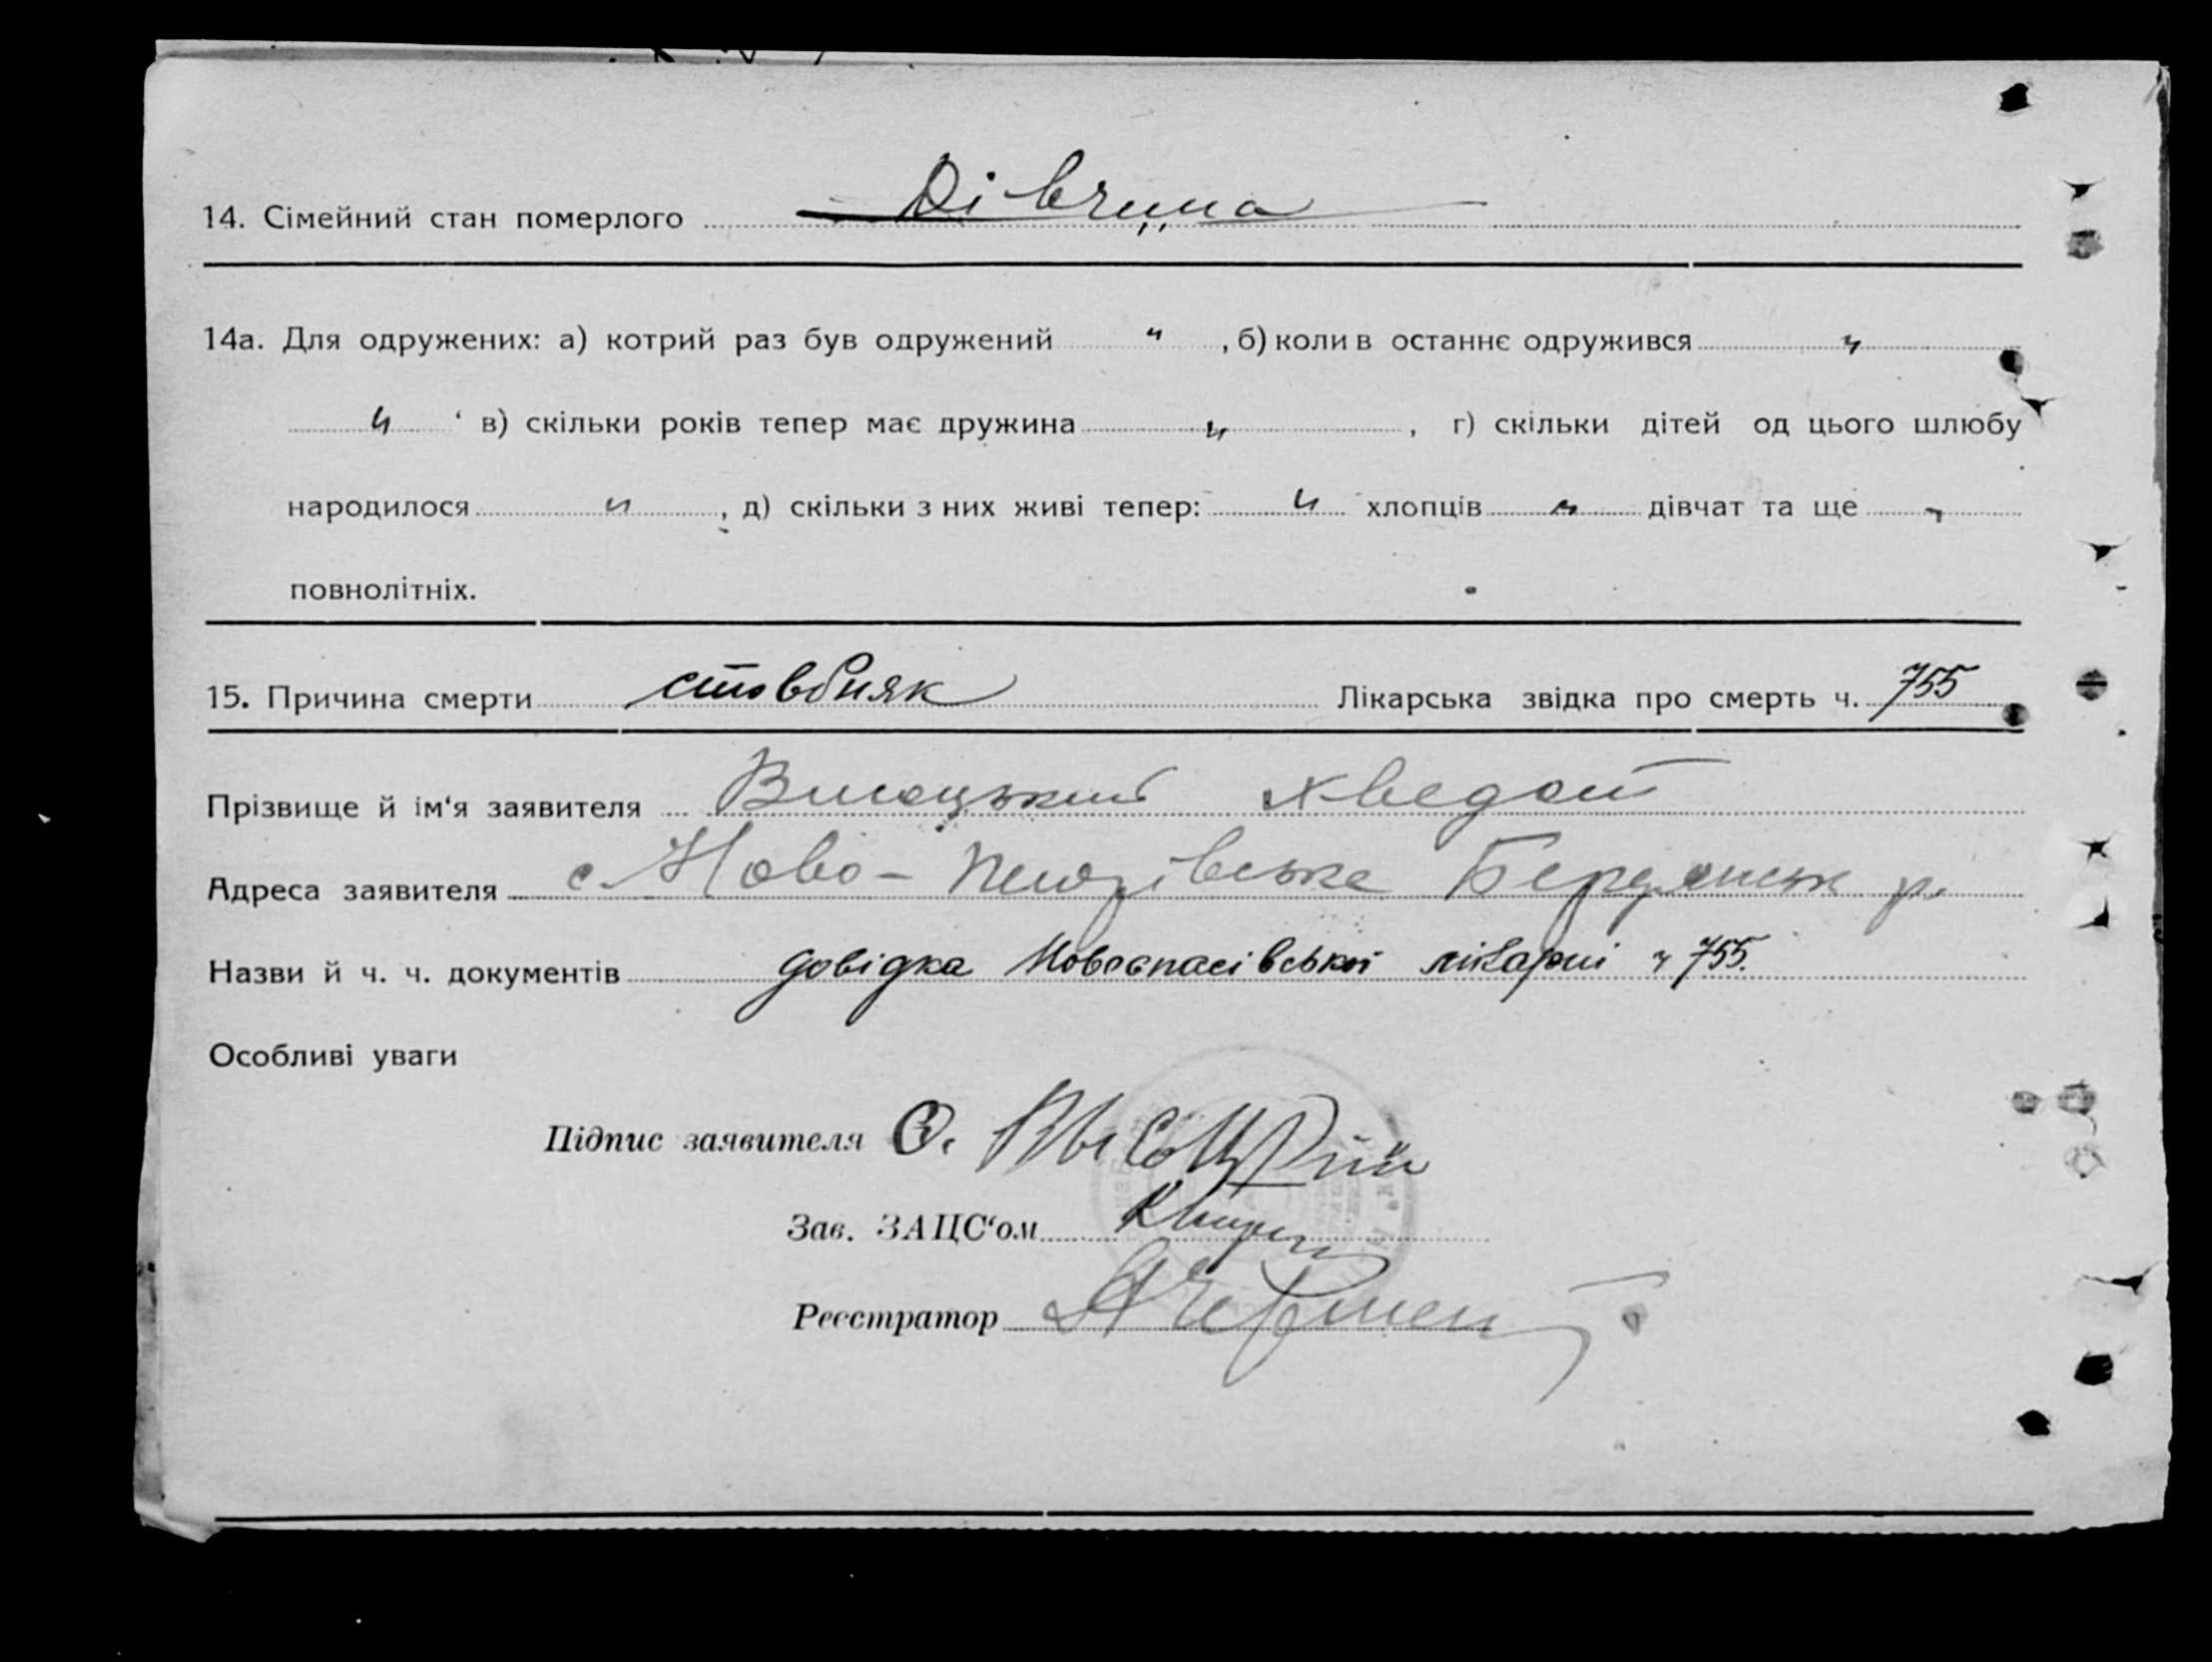 14. Сімейний стан померлого Дівчина
14а. Для одружених: а) котрий раз був одружений " , б) коли в останнє одружився "
" в) скільки років тепер має дружина " , г) скільки дітей од цього шлюбу
народилося " , д) скільки з них живі тепер: " хлопців " дівчат та ще "
повнолітніх.
15. Причина смерти стовбняк Лікарська звідка про смерть ч. 755
Прізвище й ім'я заявителя Висоцький Хведот
Адреса заявителя с. Ново- Бердянськ р.
Назви й ч. ч. документів довідка Новоспасівської лікарні ч 755.
Особливі уваги
Підпис заявителя Ф. Высоцкий
Зав. ЗАЦС'ом
Реєстратор